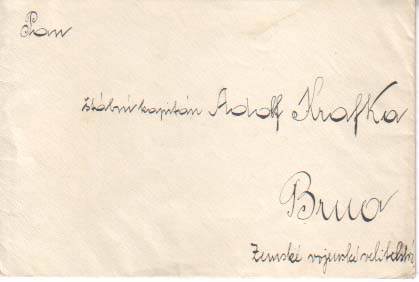 Pan
štábní kapitán Adolf Krafka
Brno
Zemské vojenské velitelství